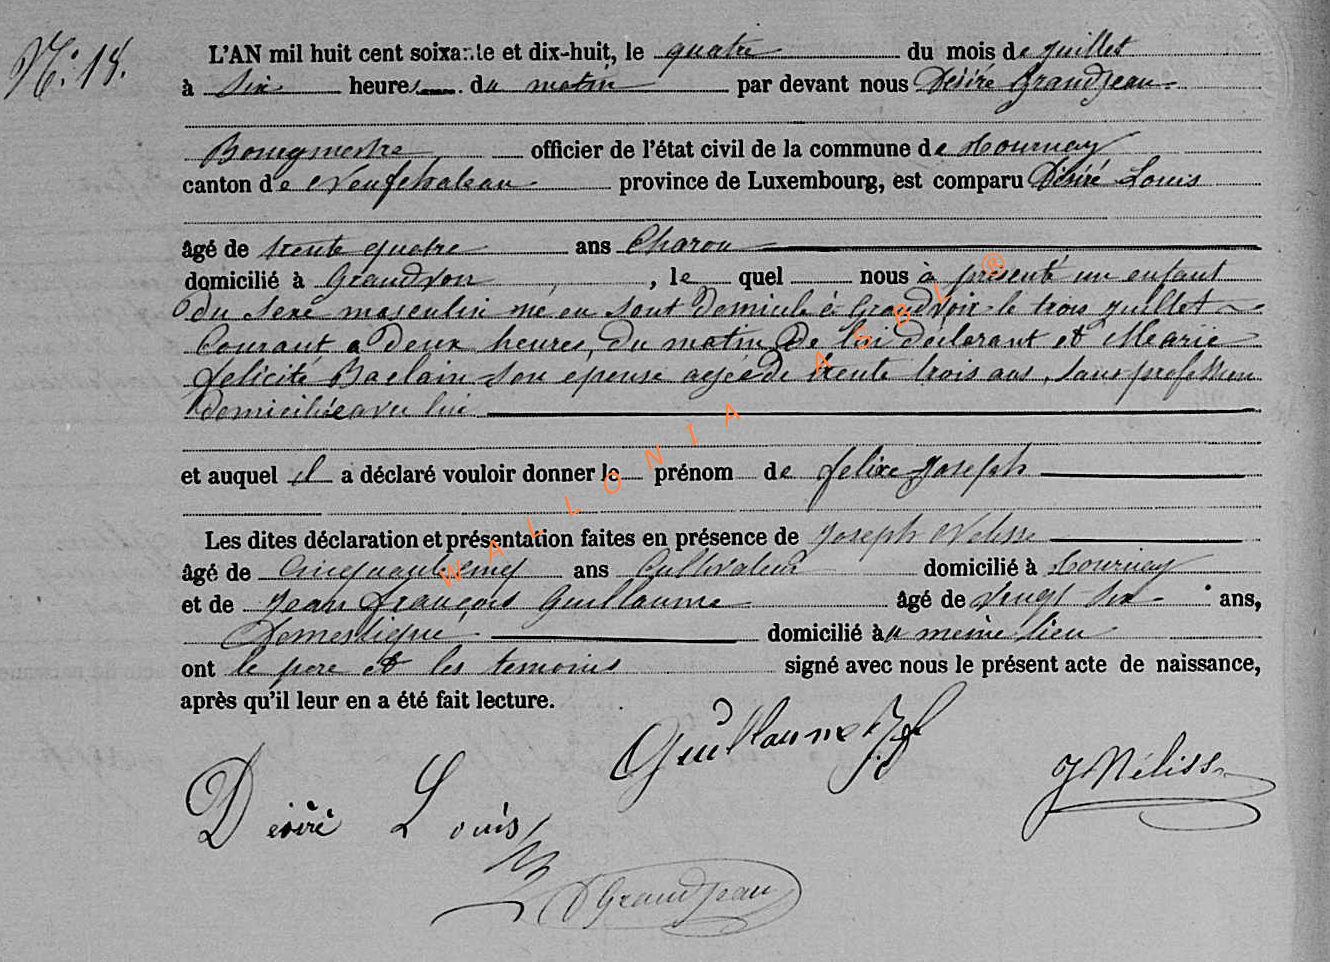 N: 18.
L'AN mil huit cent soixante et dix-huit, le quatre du mois de juillet
à six heures du matin par devant nous Désiré Grandjean
Bourgmestre officier de l'état civil de la commune de Tournay
canton de Neufchateau province de Luxembourg, est comparu Désiré Louis
âgé de trente quatre ans Charon
domicilié à Grandvoir, le quel nous à présenté un enfant
du sexe masculin né en sont domicile à Grandvoir le trois juillet
Courant a deux heures, du matin De lui déclarant et Marie
félicité Baclain son épouse agée de trente trois ans, sans profession
domiciliée avec lui
et auquel il a déclaré vouloir donner le prénom de felixe Joseph
Les dites déclaration et présentation faites en présence de Joseph Nelisse
âgé de Cinquante cinq ans Cultivateur domicilié à Tournay
et de Jean françois Guillaume âgé de vingt six ans,
Domestique domicilié au même lieu
ont le père et les temoins signé avec nous le présent acte de naissance,
après qu'il leur en a été fait lecture.
Guillaume J. f
J Néliss
Désiré Louis
D Grandjean
WALLONIA ASBL ®